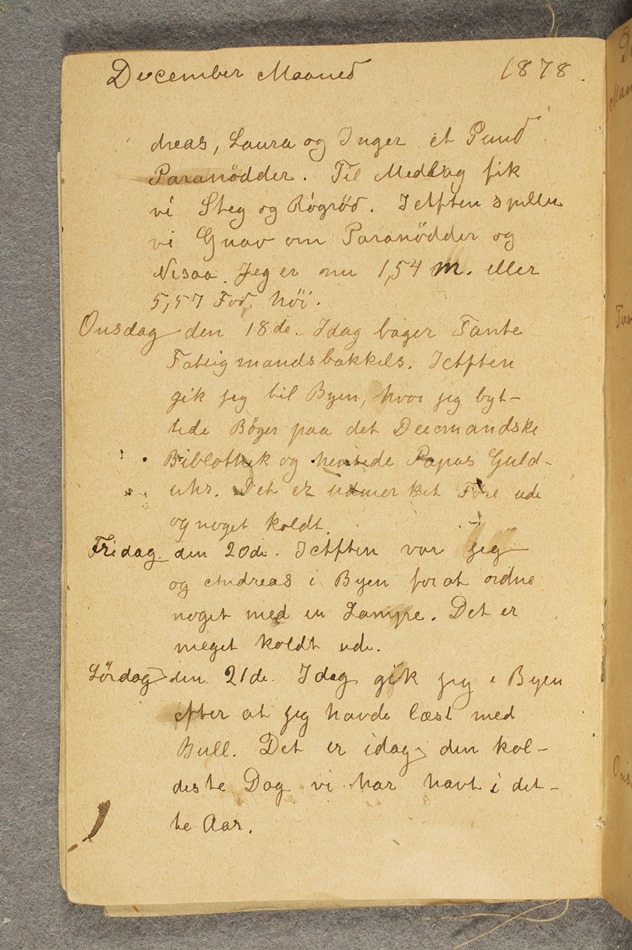 December Maaned 1878.
dreas, Laura og Inger et Pund
Paranödder. Til Meddag fik
vi Steg og Rögröd. I Aften spille
vi Gnav om Paranödder og
Nisaa. Jeg er nu 1,54 m. eller
5,57 Fod höi.
Onsdag den 18de. Idag bager Tante
Fatigmandsbakkels. I Aften
gik jeg til Byen, hvor jeg byt-
tede Böger paa det Deicmandske
Bibliothek og hentede Papas Guld-
uhr. Det er udmerket Före ude
og noget koldt.
Fridag den 20de. I Aften var jeg
og Andreas i Byen for at ordne
noget med en Lampe. Det er
meget koldt ude.
Lördag den 21de. Idag gik jeg i Byen
efter at jeg havde læst med
Bull. Det er idag den kol-
deste Dag vi har havt i det-
te Aar.